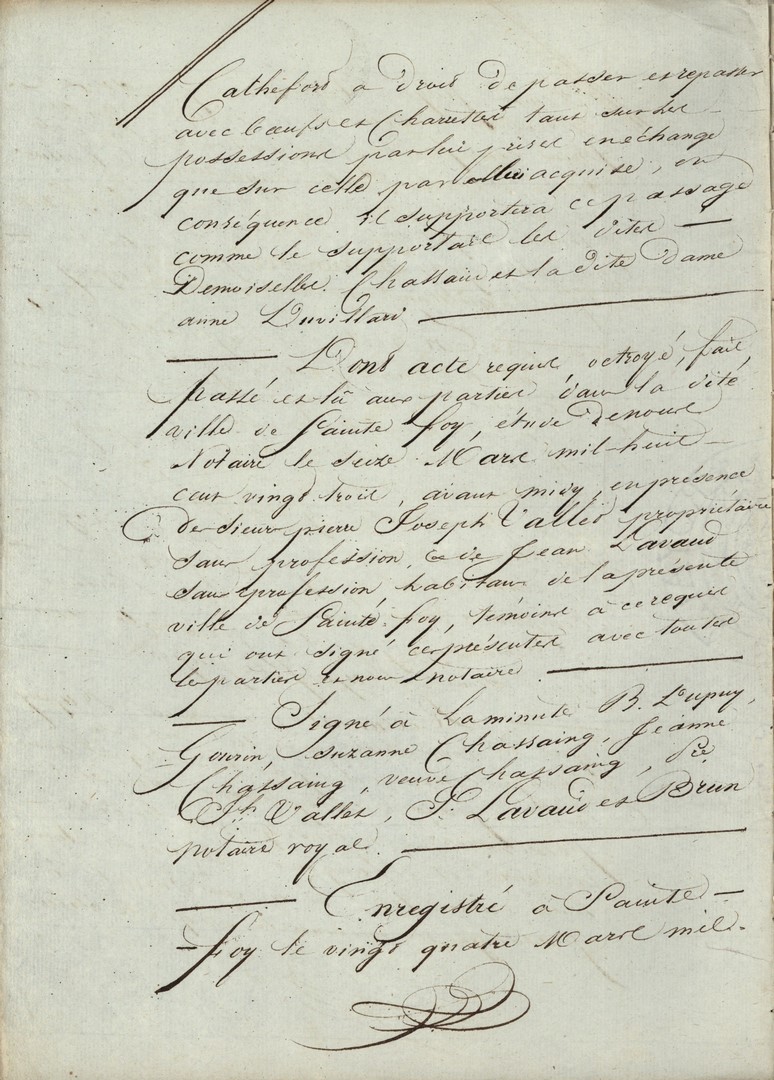 Catheford a droit de passer et repasser
avec bœufs et Charrettes tant sur les
possessions par lui prises en échange
que sur celle par elle acquise, en
conséquence il supportera ce passage
comme le supportait les dites
Demoiselles Chassain et la dite Dame
anne Duvillard
Dont acte requis, octroyé, fait,
passé et lû aux parties dans la dite
ville de Sainte foy, étude de nous
Notaire le seize Mars mil-huit
cent vingt trois, avant midy, en présence
de sieur pierre Joseph Vallet propriétaire
sans profession, & de Jean Lavaud
sans profession, habitans de la présente
ville de Sainte foy, témoins à ce requis
qui ont signé ces présentes avec toutes
les parties et nous notaire
Signé à La minute B. Dupuy,
Gourin, Suzanne Chassaing, Jeanne
Chassaing, veuve Chassaing, Pre
Jh Vallet, J. Lavaud et Brun
notaire royal.
Enregistré à Sainte-
foy le vingt quatre Mars mil-